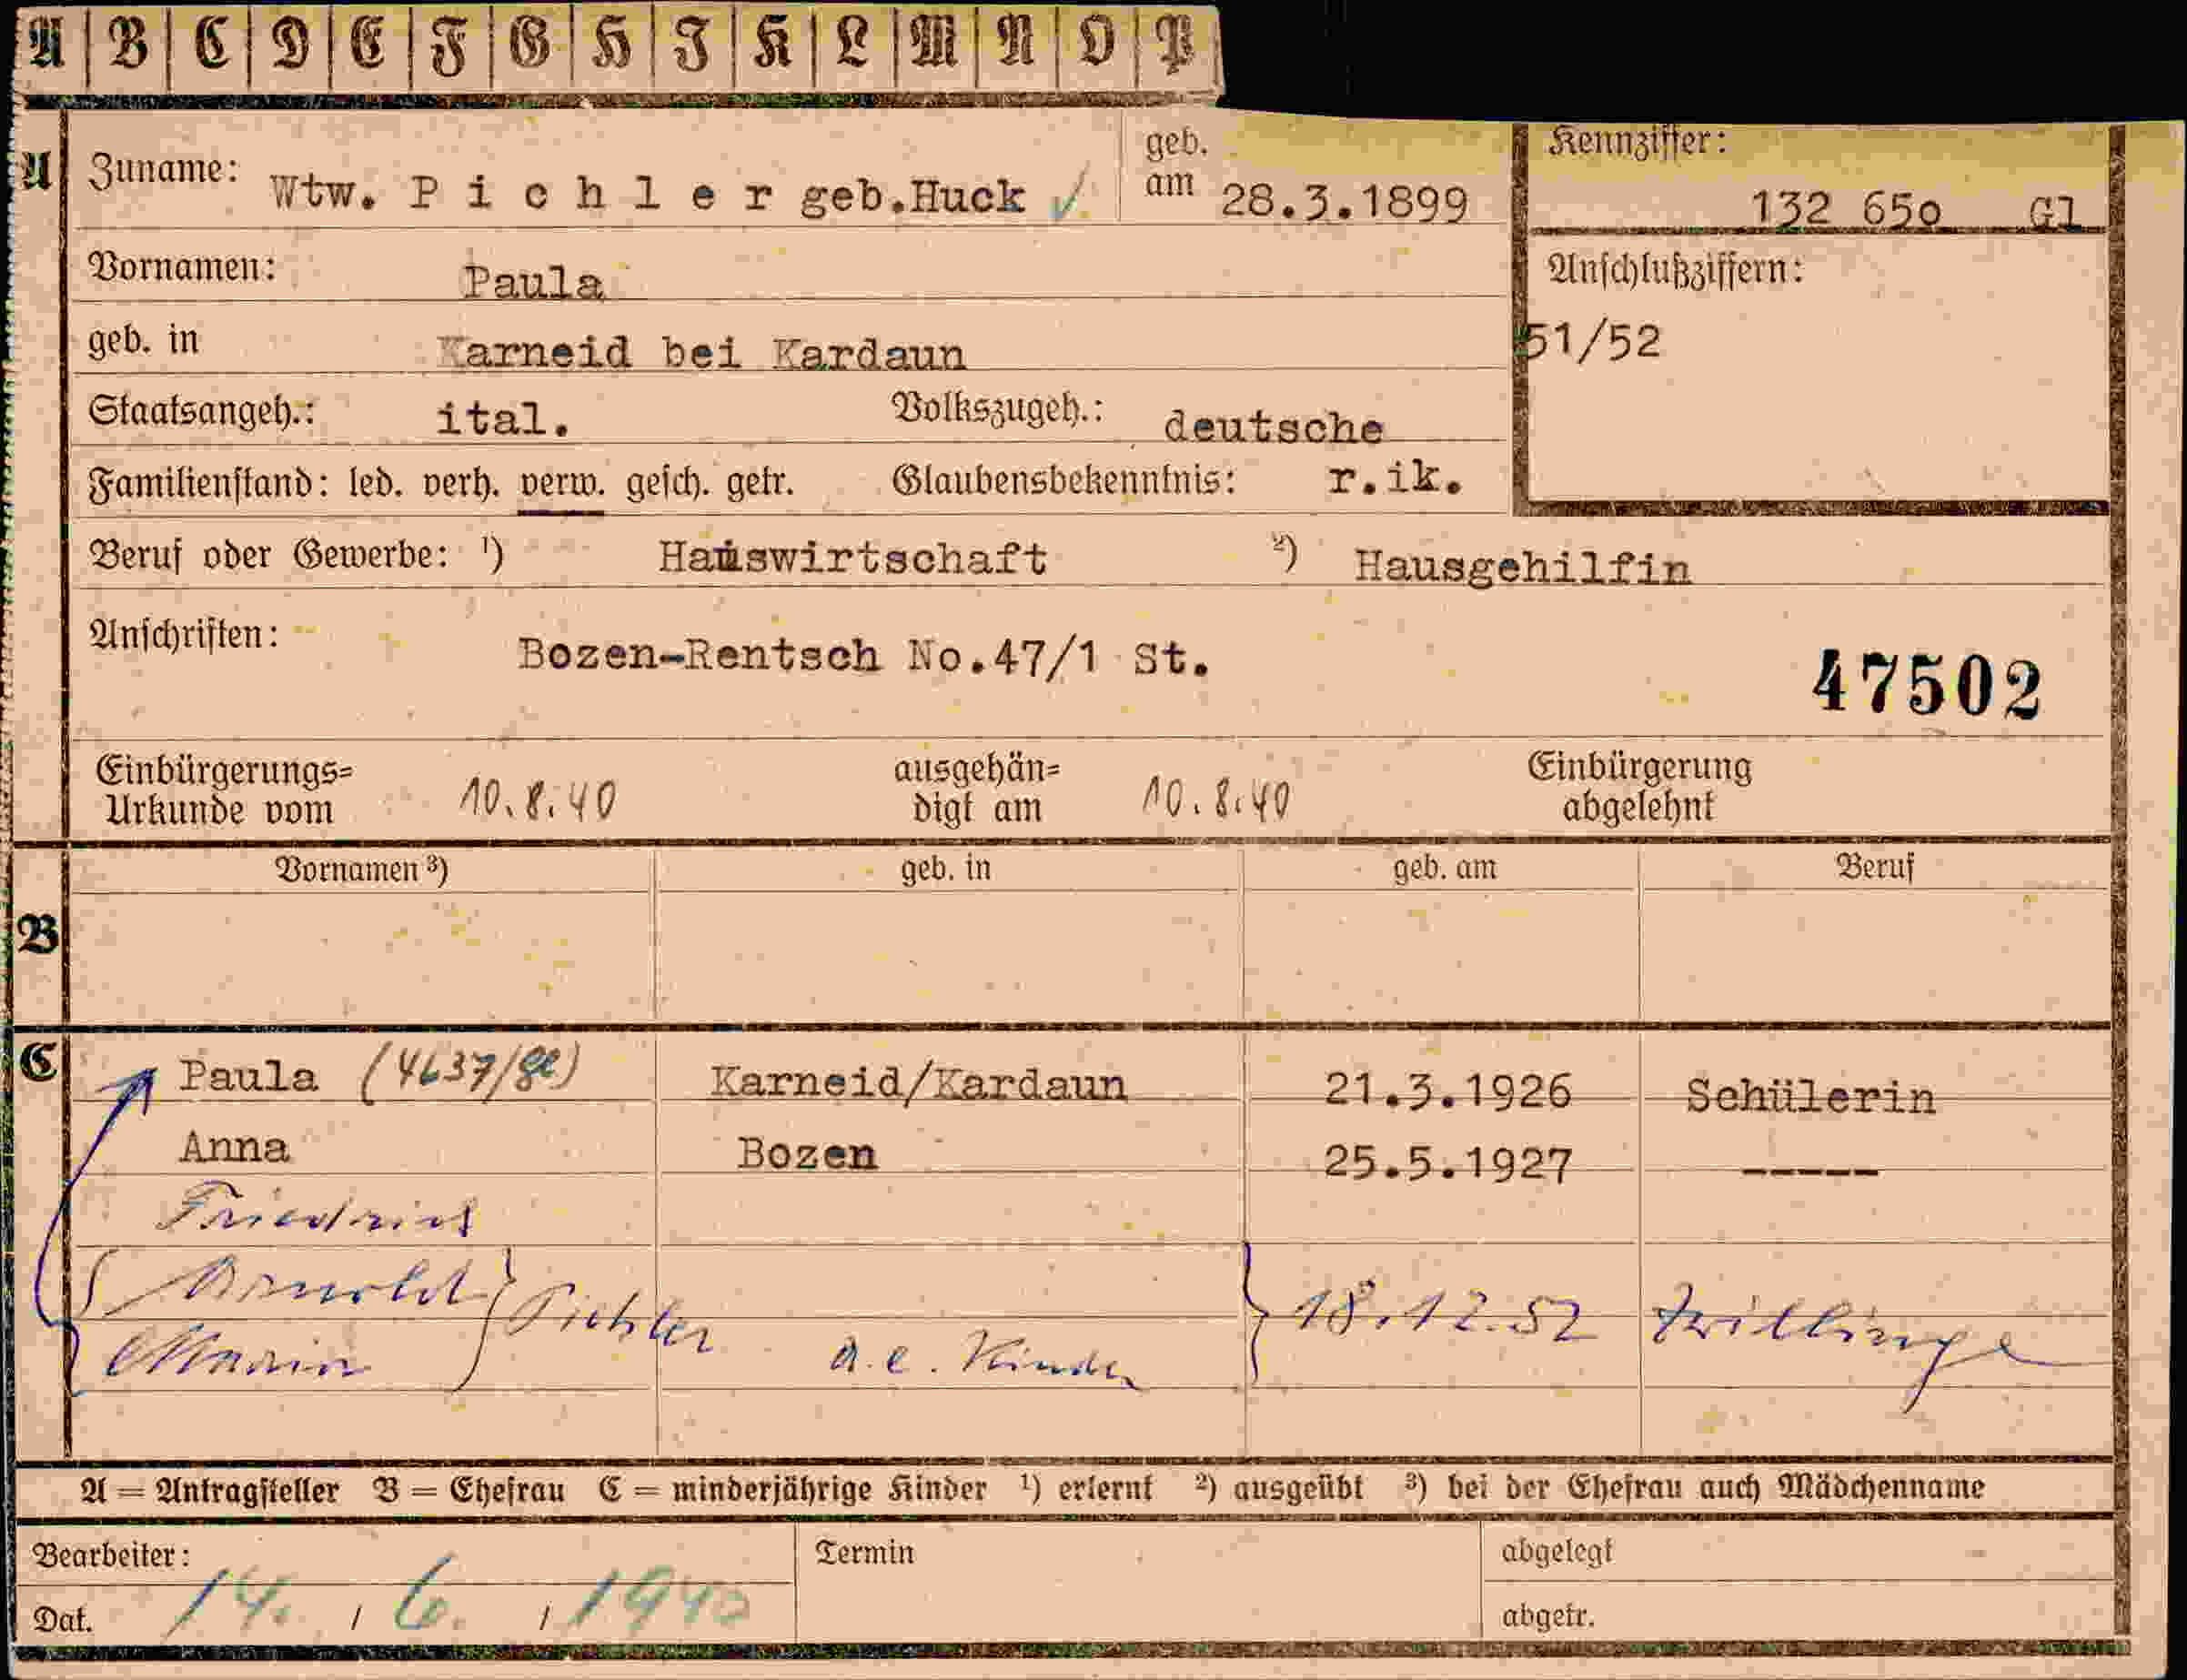 A B C D E F G H J K L M N O P
A Zuname: Wtw. P i c h l e r geb.Huck ✓ geb. am 28.3.1899 Kennziffer: 132 65o Gl
Vornamen: Paula Anschlußziffern:
geb. in Karneid bei Kardaun 51/52
Staatsangeh.: ital. Volkszugeh.: deutsche
Familienstand: led. verh. verw. gesch. getr. Glaubensbekenntnis: r.ik.
Beruf oder Gewerbe: ¹) Hauswirtschaft ²) Hausgehilfin
Anschriften: Bozen-Rentsch No.47/1 St. 47502
Einbürgerungs= ausgehän= Einbürgerung
Urkunde vom 10.8.40 digt am 10.8.40 abgelehnt
Vornamen ³) geb. in geb. am Beruf
B
C Paula (4637/) Karneid/Kardaun 21.3.1926 Schülerin
Anna Bozen 25.5.1927 -----
Friedrich
Arnold Pichler 18.12.52 Zwillinge
Maria a.e. Kinder
A = Antragsteller B = Ehefrau C = minderjährige Kinder ¹) erlernt ²) ausgeübt ³) bei der Ehefrau auch Mädchenname
Bearbeiter: Termin abgelegt
Dat. 14. / 6. / 1940 abgetr.